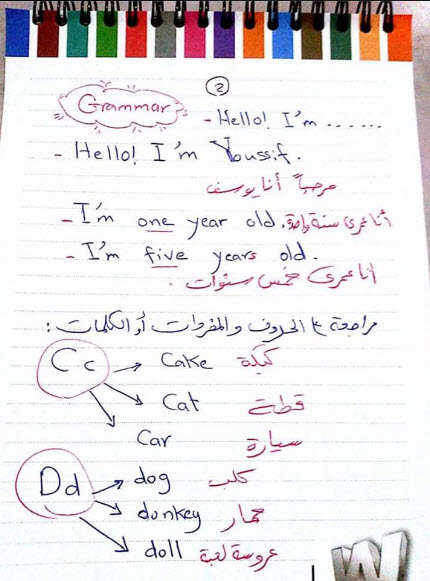 2
Grammar
- Hello! I'm ......
- Hello! I'm Youssif.
مرحباً أنا يوسف
- I'm one year old. أنا عمرى سنة واحدة
- I'm five years old.
أنا عمرى خمس سنوات .
مراجعة ع الحروف والمفردات أو الكلمات :
Cc → Cake كيكة
Cat قطة
Car سيارة
Dd → dog كلب
donkey حمار
doll عروسة لعبة